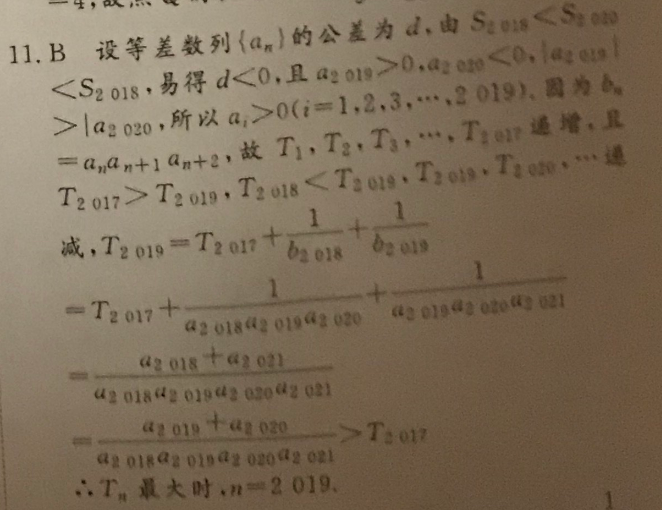 11. B 设等差数列{aₙ}的公差为 d,由 S₂ ₀₁₈<S₂ ₀₂₀
<S₂ ₀₁₈,易得 d<0,且 a₂ ₀₁₉>0,a₂ ₀₂₀<0,|a₂ ₀₁₉|
>|a₂ ₀₂₀,所以 aᵢ>0(i=1,2,3,…,2 019).因为 bₙ
=aₙaₙ₊₁aₙ₊₂,故 T₁,T₂,T₃,…,T₂ ₀₁₇ 递增,且
T₂ ₀₁₇>T₂ ₀₁₉,T₂ ₀₁₈<T₂ ₀₁₉,T₂ ₀₁₉,T₂ ₀₂₀,…递
减,T₂ ₀₁₉=T₂ ₀₁₇+1/b₂ ₀₁₈+1/b₂ ₀₁₉
=T₂ ₀₁₇+1/(a₂ ₀₁₈a₂ ₀₁₉a₂ ₀₂₀)+1/(a₂ ₀₁₉a₂ ₀₂₀a₂ ₀₂₁)
=(a₂ ₀₁₈+a₂ ₀₂₁)/(a₂ ₀₁₈a₂ ₀₁₉a₂ ₀₂₀a₂ ₀₂₁)
=(a₂ ₀₁₉+a₂ ₀₂₀)/(a₂ ₀₁₈a₂ ₀₁₉a₂ ₀₂₀a₂ ₀₂₁)>T₂ ₀₁₇
∴Tₙ 最大时,n=2 019.
1